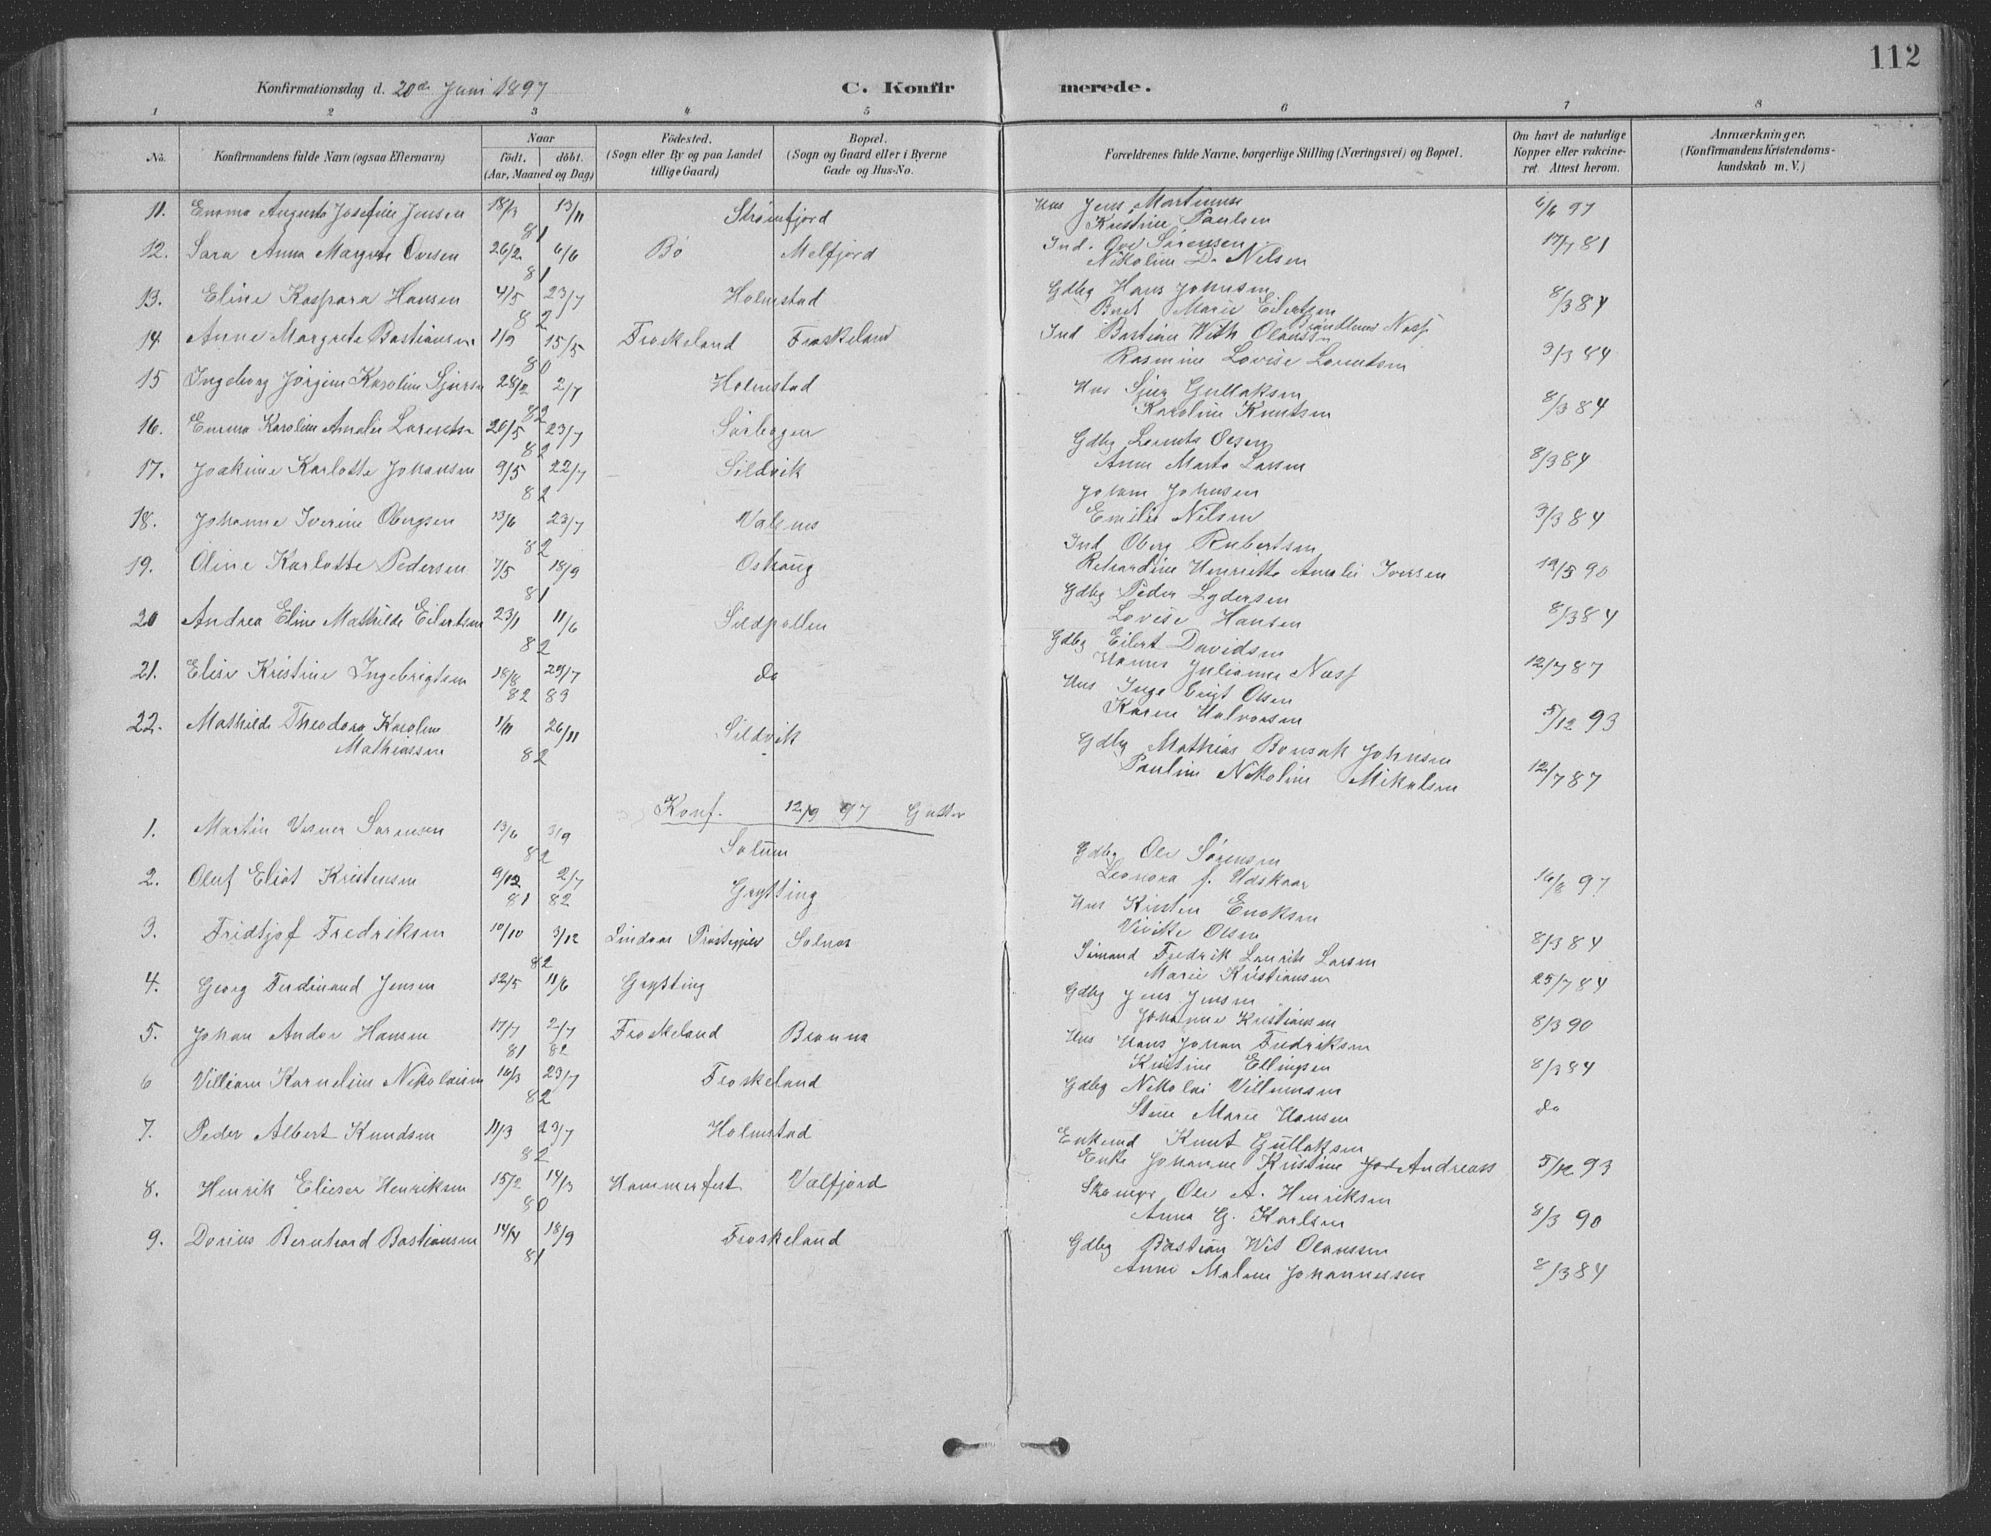 112
Konfirmationsdag d. 20de Juni 1897
C. Konfir merede.
1 2 3 4 5 6 7 8
No.
Konfirmandens fulde Navn (ogsaa Efternavn)
Naar
födt. döbt.
(Aar, Maaned og Dag)
Födested.
(Sogn eller By og paa Landet
tillige Gaard)
Bopæl.
(Sogn og Gaard eller i Byerne
Gade og Hus-No.
Forældrenes fulde Navne, borgerlige Stilling (Næringsvei) og Bopæl.
Om havt de naturlige
Kopper eller vakcine-
ret. Attest herom.
Anmærkninger.
(Konfirmandens Kristendoms-
kundskab m. V.)
11. Emma Augusta Josefine Jensen 18/3 13/11 81 Strømfjord Hus Jens Martinus 6/6 97
Kristine Paulsen
12. Sara Anna Margrete Ovesen 26/2 6/6 81 Bö Melfjord Ind. Ove Sørensen 17/7 81
Nikoline D. Nilsen
13. Eline Kaspara Hansen 4/5 23/7 82 Holmstad Gdbg Hans Johnsen 8/3 84
Beret Marie Eilertsen
14 Anne Margrete Bastiansen 1/9 15/5 80 Froskeland Froskeland Ind Bastian With Olaussen 3/3 84
Rasmine Lovise Lorentsen
15 Ingeborg Jörgine Karoline Sjursn 28/2 2/7 82 Holmstad Hus Sjur Gullaksen 8/3 84
Karoline Knutsen
16. Emma Karoline Amalie Lorentsn 20/5 23/7 82 Sörbogen Gdbg Lorents Olsen
Anne Marta Larsen 8/3 84
17. Joakime Karlotte Johansen 9/5 22/7 82 Sildvik Johan Johnsen
Emilie Nilsen 3/3 84
18. Johanne Iverine Obergsen 13/6 23/7 82 Valnes Ind Oberg Rubertsen
Rikardine Henriette Amalie Iversen 19/5 90
19. Oline Karlotte Pedersen 7/5 18/9 81 Oshaug Gdbg Peder Lydersen
Lovise Hansen 8/3 84
20 Andrea Eline Mathilde Eilertsen 23/1 11/6 82 Sildpollen Gdbg Eilert Davidsen
Hanna Julianne Næss 12/7 87
21. Elise Kristine Ingebrigtsen 18/8 82 29/7 83 do Hus Ingebrigt Olsen
Karen Halvorsen 5/12 93
22. Mathilde Theodora Karoline 1/11 26/11 82 Sildvik Gdbg Mathias Bonsak Johnsen
Mathiassen Pauline Nikoline Mikalsen 12/7 87
Konf. 12/9 97 Gutter
1. Martin Verner Sørensen 13/6 3/9 82 Solum Gdbg Ole Sörensen
Leonora J. Udskaar 16/8 97
2. Oluf Eliot Kristensen 9/12 81 2/7 82 Grytting Hus Kristen Enoksen
Vivikke Olsen 8/3 84
3. Fridtjof Fredriksen 10/10 3/12 82 Lindaas Prestegjeld Selnes Sömand Fredrik Laurits Larsen
Marie Kristiansen 25/7 84
4. Georg Ferdinand Jensen 12/5 11/6 Grytting Gdbg Jens Jensen
Johanne Kristiansen 8/3 90
5. Johan Andor Hansen 17/7 81 2/7 82 Froskeland Brønna Hus Hans Johan Fredriksen
Kristine Ellingsen 8/3 84
6 Villiam Kornelius Nikolaisen 16/3 23/7 82 Froskeland Gdbg Nikolai Villumsen
Stine Marie Hansen do
7. Peder Albert Knudsen 11/3 23/7 82 Holmstad Enkemd Knut Gullaksen
Enke Johanne Kristine Andreass 5/12 93
8. Henrik Elieser Henriksen 15/2 14/3 80 Hammerfest Valfjord Skomgr Ole A. Henriksen
Anna G. Karlsen 8/3 90
9. Dorius Bernhard Bastiansen 14/4 18/9 81 Froskeland Gdbg Bastian Wit Olaussen
Anne Malene Johannessen 8/3 84